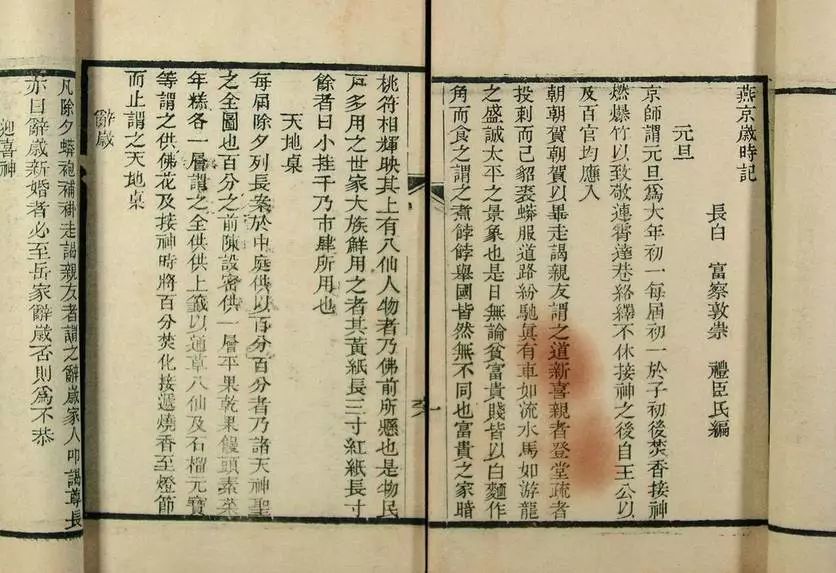 燕京歲時記
長白　富察敦崇　禮臣氏編
元旦
京師謂元旦爲大年初一每屆初一於子初後焚香接神
燃爆竹以致敬連霄達巷絡繹不休接神之後自王公以
及百官均應入
朝朝賀朝賀以畢走謁親友謂之道新喜親者登堂疏者
投刺而已貂裘蟒服道路紛馳眞有車如流水馬如游龍
之盛誠太平之景象也是日無論貧富貴賤皆以白麵作
角而食之謂之煮餑餑舉國皆然無不同也富貴之家暗
桃符相輝映其上有八仙人物者乃佛前所懸也是物民
戶多用之世家大族鮮用之者其黃紙長三寸紅紙長寸
餘者曰小挂千乃市肆所用也
天地桌
每屆除夕列長案於中庭供以百分百分者乃諸天神聖
之全圖也百分之前陳設密供一層平果乾果饅頭素菜
年糕各一層謂之全供供上籤以通草八仙及石榴元寶
等謂之供佛花及接神時將百分焚化接遞燒香至燈節
而止謂之天地桌
辭歲
凡除夕蟒袍補褂走謁親友者謂之辭歲家人叩謁尊長
亦曰辭歲新婚者必至岳家辭歲否則爲不恭
迎喜神